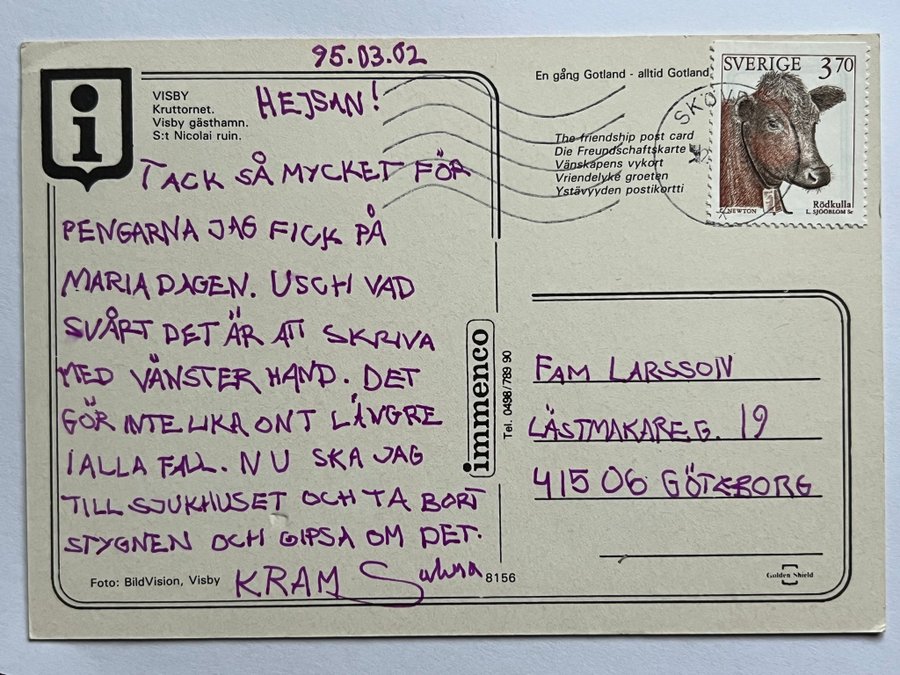 95.03.02
i
VISBY
Kruttornet.
Visby gästhamn.
S:t Nicolai ruin.
HEJSAN!
TACK SÅ MYCKET FÖR
PENGARNA JAG FICK PÅ
MARIA DAGEN. USCH VAD
SVÅRT DET ÄR ATT SKRIVA
MED VÄNSTER HAND. DET
GÖR INTE LIKA ONT LÄNGRE
I ALLA FALL. NU SKA JAG
TILL SJUKHUSET OCH TA BORT
STYGNEN OCH GIPSA OM DET.
KRAM
Foto: BildVision, Visby
8156
immenco
Tel. 0498/789 90
En gång Gotland - alltid Gotland
The friendship post card
Die Freundschaftskarte
Vänskapens vykort
Vriendelyke groeten
Ystävyyden postikortti
SVERIGE 3.70
Z. NEWTON
Rödkulla
L. SJÖÖBLOM Sc
FAM LARSSON
LÄSTMAKAREG. 19
415 06 GÖTEBORG
Golden Shield